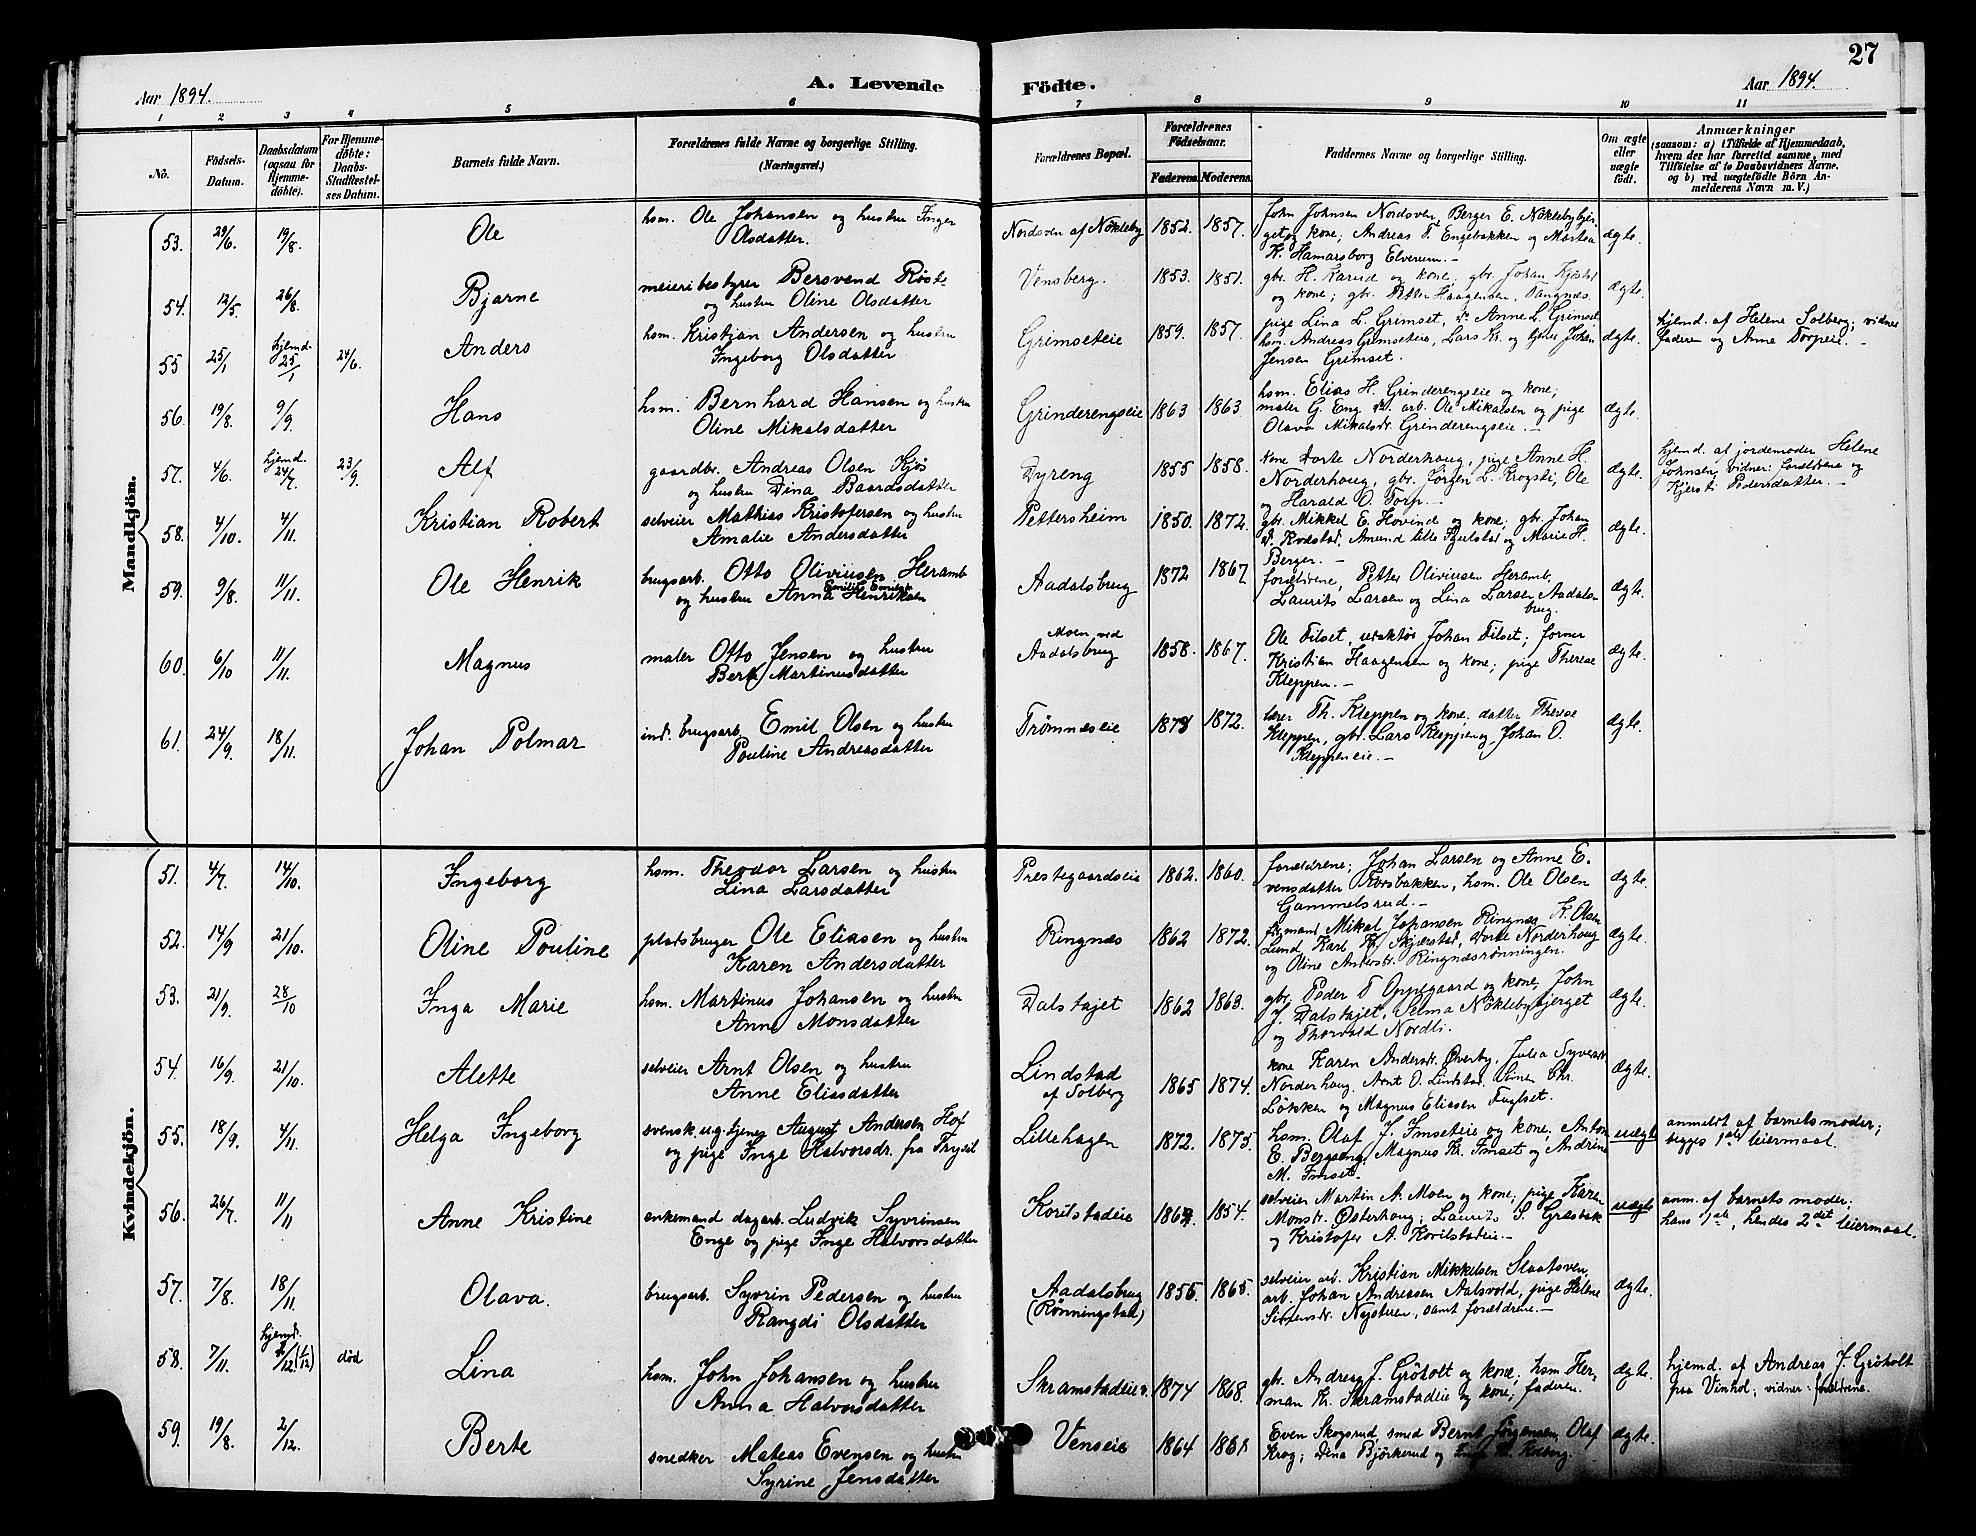 27
Aar 1894.
A. Levende
Födte.
Aar 1894.
1 2 3 4 5 6 7 8 9 10 11
No.
Födsels-Datum.
Daabsdatum (ogsaa for Hjemmedöbte).
For Hjemmedöbte: Daabs-Stadfæstelses Datum.
Barnets fulde Navn.
Forældrenes fulde Navne og borgerlige Stilling. (Næringsvei.)
Forældrenes Bopæl.
Forældrenes Födselsaar.
Faderens. Moderens.
Faddernes Navne og borgerlige Stilling.
Om ægte eller uægte födt.
Anmærkninger
(saasom: a) i Tilfælde af Hjemmedaab, hvem der har forrettet samme, med Tilföielse af to Daabsvidners Navne, og b) ved uægtefödte Börn Anmelderens Navn m. V.)
Mandkjön.
53. 29/6. 19/8. Ole
hsm. Ole Johansen og hustru Inger
Olsdatter.
Nordsven af Nökleby 1852. 1857.
John Johnsen Nordsven, Berger E. Nöklebybjer
get og kone; Andreas T. Engebakken og Martea
K. Hamarsborg Elverum. –
ægte.
54. 12/5. 26/8. Bjarne
meieribestyrer Bersvend Røste
og hustru Oline Olsdatter
Vensberg. 1853. 1851.
gbr. H. Karud og kone, gbr. Johan Kjøstad
og kone; gbr. Petter Haagensen, Tangnæs.
ægte.
55 25/1 hjemd. 25/1 24/6. Anders
hsm. Kristian Andersen og hustru
Ingeborg Olsdatter
Grimseteie 1859. 1857.
pige Lina L. Grimset, do Anne L. Grimset
hsm. Andreas Grimseteie, Lars Kr. og tjener Johan
Jensen Grimset.
ægte.
hjemd. af Helene Solberg; vidner
faderen og Anne Torpeie. –
56. 19/8. 9/9. Hans
hsm. Bernhard Hansen og hustru
Oline Mikalsdatter
Grinderengseie 1863 1863
hsm. Elias H. Grinderengseie og kone;
maler G. Eng do. arb. Ole Mikalsen og pige
Olava Mikalsdr. Grinderengseie. –
ægte.
57. 4/6. hjemd. 24/7. 23/9. Alf
gaardbr. Andreas Olsen Kjös
og hustru Dina Baardsdatter
Dyreng 1855 1858.
kone Dorte Norderhoug, pige Anne H.
Norderhoug, gbr. Jörgen L. Krogsti, Ole
og Harald O. Torp. –
ægte.
hjemd. af jordemoder Helene
Johnsen, vidner: forældrene og
Kjersti Pedersdatter. –
58. 4/10. 4/11. Kristian Robert
selveier Mathias Kristofersen og hustru
Amalie Andersdatter
Pettersheim 1850. 1872.
gbr. Mikkel E. Hovind og kone; gbr. Johan
P. Rodstad, Amund Lille Fjeilstad og Marie H.
Berger. –
ægte.
59. 9/8. 11/11. Ole Henrik
brugsarb. Otto Oliviusen Heramb
og hustru Anna Emilie Henriksen
Aadalsbrug 1872 1867
forældrene, Petter Oliviusen Heramb,
Laurits Larsen og Lina Larsen Aadals-
brug.
ægte.
60. 6/10 11/11. Magnus
maler Otto Jensen og hustru
Berte Martinusdatter
Moen ved
Aadalsbrug 1858. 1867.
Ole Tilset, Johan Tilset; former
Kristian Haagensen og kone; pige Therese
Kleppen. –
ægte.
61. 24/9. 18/11. Johan Polmar
ind. brugsarb. Emil Olsen og hustru
Pouline Andreasdatter
Trømnæseie 1872.
lærer Th. Kleppen og kone, datter Therese
Kleppen, gbr. Lars Kleppen og Johan O.
Kleppeneie. –
ægte.
Kvindekjön.
51. 4/7. 14/10. Ingeborg
hsm. Theodor Larsen og hustru
Lina Larsdatter
Prestegaardseie 1862. 1860.
forældrene; Johan Larsen og Anne E.
vensdatter Korsbakken, hsm. Ole Olsen
Gammelsrud. –
ægte.
52. 14/9 21/10. Oline Pouline
pladsbruger Ole Eliasen og hustru
Karen Andersdatter
Ringnæs 1862 1872.
Mikal Johansen Ringnæs, K. Olsen
Lund, Karl Kr. Skjærstad, Dorte Norderhoug
og Oline Andersdr. Ringnæsrønningen.
ægte.
53. 21/9. 28/10 Inga Marie
hsm. Martinus Johansen og hustru
Anne Monsdatter
Dalstøjet 1862 1863.
gbr. Peder T. Oppegaard og kone, John
J. Dalstøjet, Selma Nöklebybjerget
og Thorvald Nordli.
ægte.
54. 16/9. 21/10. Alette
selveier Arnt Olsen og hustru
Anne Eliasdatter
Lindstad
af Solberg 1865 1874.
kone Karen Andersdr. Øverby, Julia Syversdr.
Norderhoug, Arnt O. Lindstad, Simen Chr.
Løkken og Magnus Eliasen Fuglset.
ægte.
55. 18/9. 4/11. Helga Ingeborg
svensk u.g. tjener August Andersen Hof
og pige Inge Halvorsdr. fra Trysil
Lillehagen 1872. 1873.
hsm. Olaf J. Imseteie og kone, Anton
E. Bergseng, Magnus Kr. Imset og Andrine
M. Imset.
uægte
anmeldt af barnets moder;
begges 1ste leiermaal.
56. 26/7. 11/11 Anne Kristine
enkemand dagarb. Ludvik Syvrinsen
Enge og pige Inge Halvorsdatter
Korilstadeie 1854.
selveier Martin A. Moen og kone; pige Karen
Monsdr. Østerhoug; Laurits S. Græsbak
og Kristofer A. Korilstadeie. –
uægte
anm. af barnets moder;
hans 1ste, hendes 2det leiermaal.
57. 7/8. 18/11. Olava.
brugsarb. Syvrin Pedersen og hustru
Rangdi Olsdatter
Aadalsbrug
(Rønningstad) 1856 1865.
selveier arb. Kristian Mikkelsen Slaatsven,
arb. Johan Andreasen Aalsvold, pige Helene
Simensdr. Nystuen, samt forældrene. –
ægte.
58. 7/11. hjemd. /12 (1/12) død Lina
hsm. John Johansen og hustru
Anna Halvorsdatter
Skramstadeie v. 1874 1868.
gbr. Andreas J. Gröholt og kone, hsm Her-
man Kr. Skramstadeie og kone, faderen.
ægte.
hjemd. af Andreas J. Gröholt
paa Vinhol; vidner: forældrene
59. 19/8. 2/12. Berte
snedker Mateas Evensen og hustru
Syrine Jensdatter
Venseie 1864
Even Skogsrud, smed Bernt Jørgensen, Olaf
Krog; Dina Bjørkerud og
ægte.